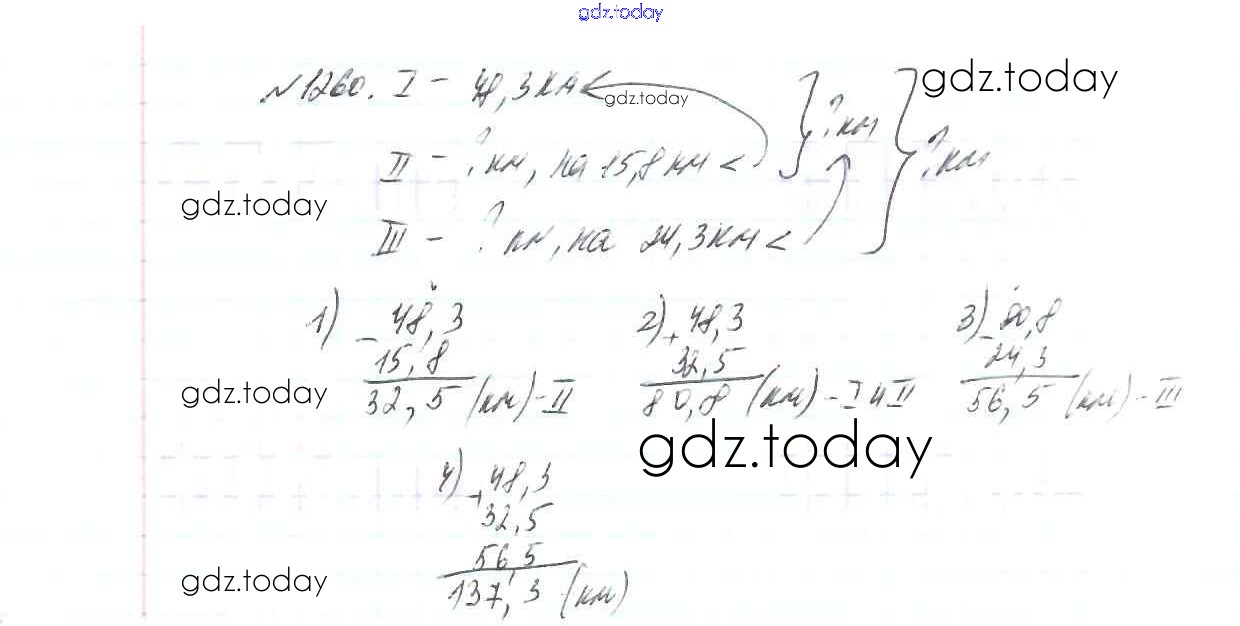 gdz.today
№1260. I - 48,3 км <
gdz.today
gdz.today
II - ? км, на 15,8 км <
? км
? км
gdz.today
III - ? км, на 24,3 км <
1) - 48,3
15,8
32,5 (км) - II
2) + 48,3
32,5
80,8 (км) - I и II
3) - 80,8
24,3
56,5 (км) - III
gdz.today
gdz.today
4) + 48,3
32,5
56,5
137,3 (км)
gdz.today